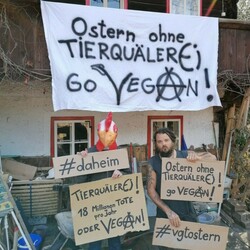 Ostern ohne
TIERQUÄLER(E),
GO VEGAN!
#daheim
TIERQUÄLER(E)!
18 Millionen TOTE
pro Jahr
ODER VEGAN!
Ostern ohne
TIERQUÄLER(E)!
go VEGAN!
#vgtostern